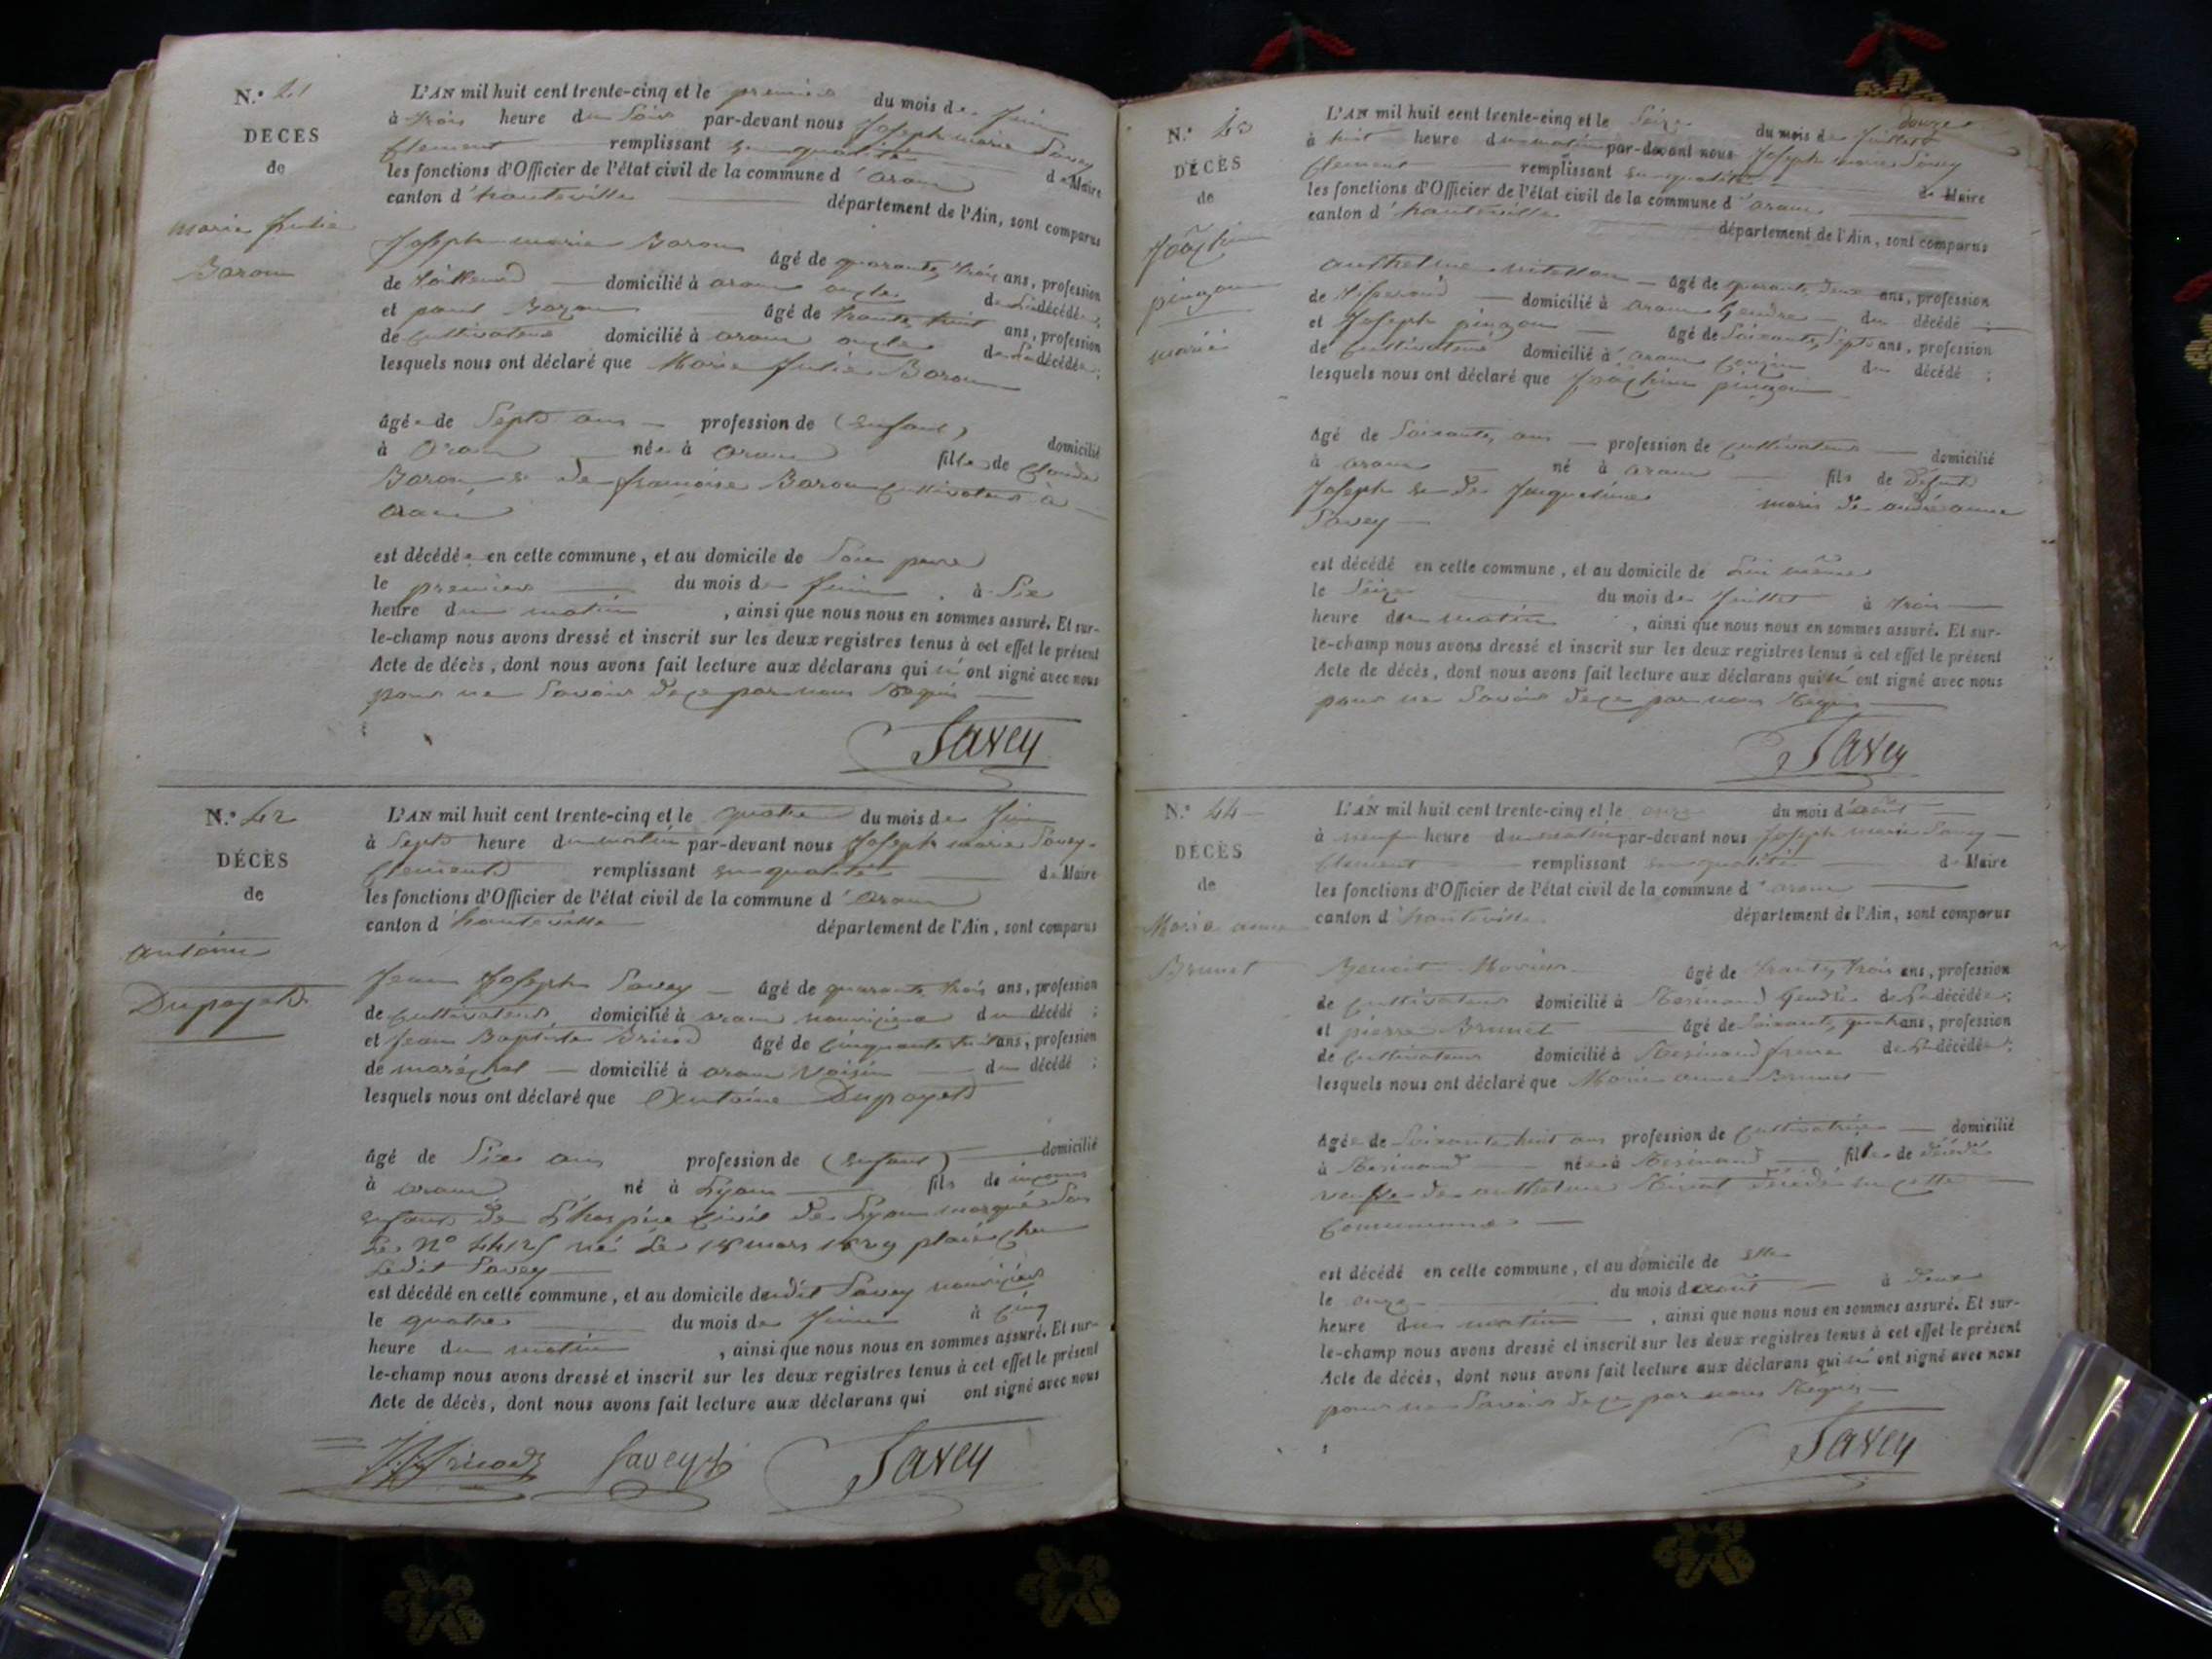 N.° 41
DÉCÈS
de
Marie Julie
Baron
L'AN mil huit cent trente-cinq et le premier du mois de Juin
à trois heure du Soir par-devant nous Joseph marie Savey
Clement remplissant en qualité de Maire
les fonctions d'Officier de l'état civil de la commune d'aranc
canton d'hauteville département de l'Ain, sont comparus
Joseph marie Baron âgé de quarante trois ans, profession
de domicilié à aranc oncle de La décédée;
et paul Bazon âgé de trante huit ans, profession
de Cultivateur domicilié à aranc oncle de La décédée;
lesquels nous ont déclaré que Marie Julie Baron
âgée de Sept ans profession de (enfant) domicilié
à Aranc née à Aranc fille de Claude
Baron et de françoise Baron Cultivateur à
Aranc
est décédée en cette commune, et au domicile de Son pere
le premier du mois de Juin, à Six
heure du matin, ainsi que nous nous en sommes assuré. Et sur-
le-champ nous avons dressé et inscrit sur les deux registres tenus à cet effet le présent
Acte de décès, dont nous avons fait lecture aux déclarans qui n'ont signé avec nous
pour ne Savoir de ce par nous Requis
Savey
N.° 42
DÉCÈS
de
antoine
Dupoyet
L'AN mil huit cent trente-cinq et le quatre du mois de Juin
à Sept heure du matin par-devant nous Joseph marie Savey-
Clement remplissant en qualité de Maire
les fonctions d'Officier de l'état civil de la commune d'Aranc
canton d'hauteville département de l'Ain, sont comparus
Jean Joseph Savey âgé de quarante trois ans, profession
de Cultivateur domicilié à aranc nourricier du décédé;
et Jean Baptiste Bricod âgé de Cinquante huit ans, profession
de maréchal domicilié à aranc Voisin du décédé;
lesquels nous ont déclaré que Antoine Dupoyet
âgé de Six ans profession de (enfant) domicilié
à aranc né à Lyon fils de inconnus
enfant de L'hospice Civil de Lyon marqué Sous
Le N° né Le 18 mars 1829 placé chez
Ledit Savey
est décédé en cette commune, et au domicile dudit Savey nourricier
le quatre du mois de Juin à Cinq
heure du matin, ainsi que nous nous en sommes assuré. Et sur-
le-champ nous avons dressé et inscrit sur les deux registres tenus à cet effet le présent
Acte de décès, dont nous avons fait lecture aux déclarans qui ont signé avec nous
Savey Savey
N.° 43
DÉCÈS
de
Joachim
pingon
marié
L'AN mil huit cent trente-cinq et le Seize du mois de Juillet
à huit heure du matin par-devant nous Joseph marie Savey
Clement remplissant en qualité de Maire
les fonctions d'Officier de l'état civil de la commune d'aranc
canton d'hauteville département de l'Ain, sont comparus
anthelme âgé de quarante deux ans, profession
de domicilié à aranc Gendre du décédé;
et Joseph pingon âgé de Soixante Sept ans, profession
de Cultivateur domicilié à aranc Cousin du décédé;
lesquels nous ont déclaré que Joachim pingon
âgé de Soixante ans profession de Cultivateur domicilié
à aranc né à aranc fils de défunt
Joseph et de Jacqueline mari de andréanne
Savey
est décédé en cette commune, et au domicile de Lui même
le Seize du mois de Juillet à trois
heure du matin, ainsi que nous nous en sommes assuré. Et sur-
le-champ nous avons dressé et inscrit sur les deux registres tenus à cet effet le présent
Acte de décès, dont nous avons fait lecture aux déclarans qui n'ont signé avec nous
pour ne Savoir de ce par nous Requis
Savey
N.° 44
DÉCÈS
de
Marie anne
Brunet
L'AN mil huit cent trente-cinq et le onze du mois d'août
à neuf heure du matin par-devant nous Joseph marie Savey
Clement remplissant en qualité de Maire
les fonctions d'Officier de l'état civil de la commune d'aranc
canton d'hauteville département de l'Ain, sont comparus
Benoit âgé de trante trois ans, profession
de Cultivateur domicilié à Résinand Gendre de La décédée;
et pierre Brunet âgé de Soixante quatre ans, profession
de Cultivateur domicilié à Résinand frere de La décédée;
lesquels nous ont déclaré que Marie anne Brunet
âgée de Soixante huit ans profession de Cultivatrice domicilié
à Résinand née à Résinand fille de
veuve de anthelme décédé en cette
Commune
est décédé en cette commune, et au domicile de elle
le onze du mois d'août à deux
heure du matin, ainsi que nous nous en sommes assuré. Et sur-
le-champ nous avons dressé et inscrit sur les deux registres tenus à cet effet le présent
Acte de décès, dont nous avons fait lecture aux déclarans qui n'ont signé avec nous
pour ne Savoir de ce par nous Requis
Savey